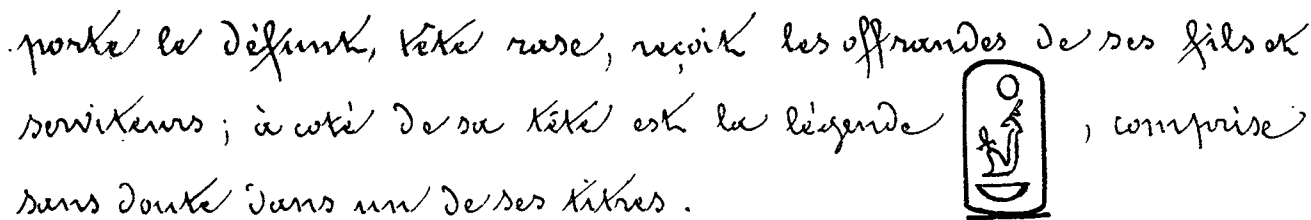 porte le défunt, tête rase, reçoit les offrandes de ses fils et
serviteurs ; à coté de sa tête est la légende 𓍹𓇳𓁦𓎟𓍺, comprise
sans doute dans un de ses titres.